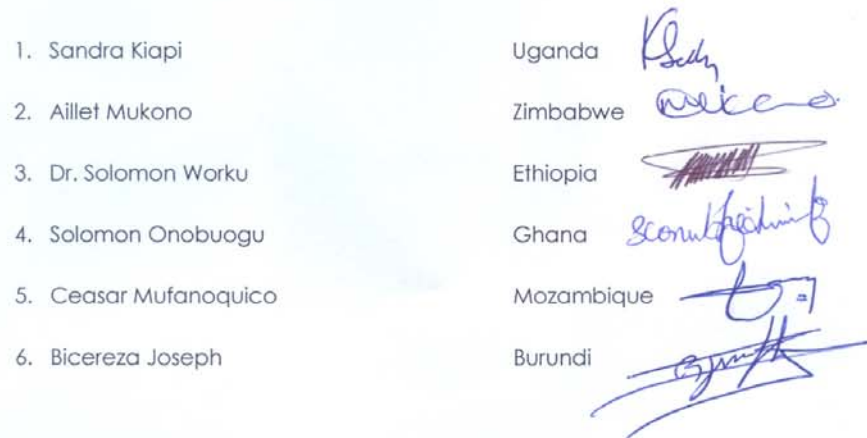 1. Sandra Kiapi Uganda
2. Aillet Mukono Zimbabwe
3. Dr. Solomon Worku Ethiopia
4. Solomon Onobuogu Ghana
5. Ceasar Mufanoquico Mozambique
6. Bicereza Joseph Burundi